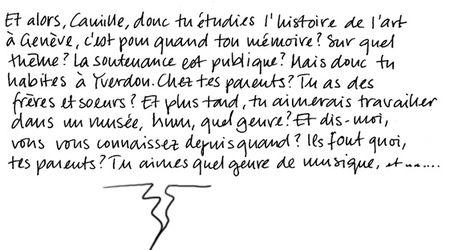 Et alors, Camille, donc tu étudies l'histoire de l'art
à Genève, c'est pour quand ton mémoire? Sur quel
thème? La soutenance est publique? Mais donc tu
habites à Yverdon. Chez tes parents? Tu as des
frères et soeurs? Et plus tard, tu aimerais travailler
dans un musée, hum, quel genre? Et dis-moi,
vous vous connaissez depuis quand? Ils font quoi,
tes parents? Tu aimes quel genre de musique, et ......